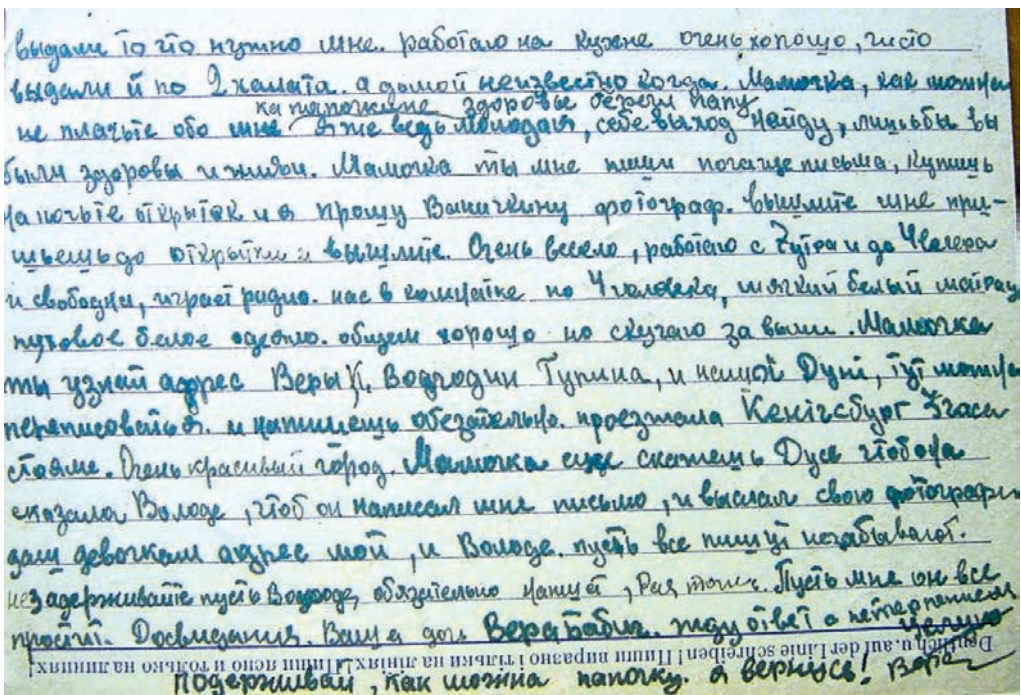 выдали то что нужно мне. работаю на кухне очень хорошо, чисто
выдали й по 2 халата. а домой неизвестно когда. Мамочка, как можна
здоровье береги папу
не плачьте обо мне я же ведь молодая, себе выход найду, лишьбы вы
были здоровы и живы. Мамочка ты мне пиши почаще письма, купишь
на почьте открыток и я прошу Ваничкину фотограф. вышлите мне при-
шьешь до открытки и вышлите. Очень весело, работаю с 7 утра и до 4 вечера
и свободна, играет радио. нас в комнатке по 4 человека, мягкий белый матрац
пуховое белое одеяло. общем хорошо но скучаю за вами. Мамочка
ты узнай адрес Веры К. Тупика, и нашой Дуні, тут можна
переписоваться. и напишешь обезательно. проезжала Кенігсбург 3 часа
стояле. Очень красивый город. Мамочка еще скажешь Дусе чтобона
сказала Володе, чтоб он написал мне письмо, и выслал свою фотографи
даш девочкам адрес мой, и Володе. пусть все пишут незабывают.
незадерживайте пусть Володе, обязательно пишет, Рая тоже. Пусть мне он все
простит. Досвидания. Ваша доч Вера Бабич. жду ответ с нетерпением
целую
Deutlich u. auf der Linie schreiben! Пиши виразно і тільки на лініях! Пиши ясно и только на линиях!
подерживай, как можна папочку. я вернусь! Вера